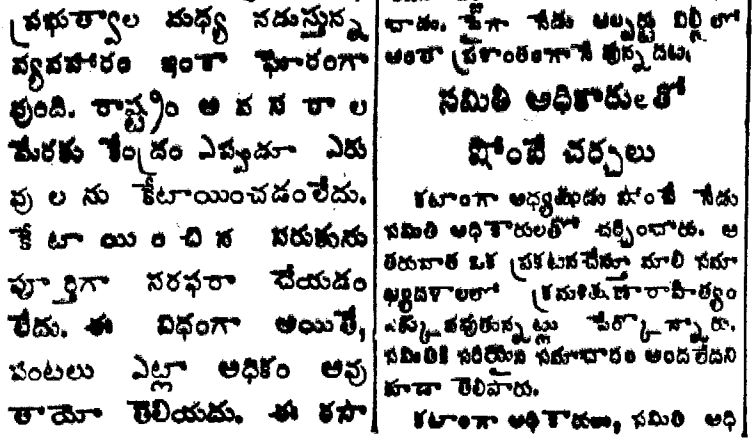 ప్రభుత్వాల మధ్య నడుస్తున్న
వ్యవహారం ఇంకా ఘోరంగా
వుంది. రాష్ట్రం అవసరాల
మేరకు కేంద్రం ఎప్పుడూ ఎరు
వులను కేటాయించడంలేదు.
కేటాయించిన సరుకును
పూర్తిగా సరఫరా చేయడం
లేదు. ఈ విధంగా అయితే,
పంటలు ఎట్లా అధికం అవు
తాయో తెలియదు. ఈ కసా
చాడు. పైగా నేడు ఆల్బర్టు విల్లీలో
అంతా ప్రశాంతంగానే వున్నదట.
సమితి అధికారులతో
షోంబే చర్చలు
కటాంగా అధ్యక్షుడు షోంబే నేడు
సమితి అధికారులతో చర్చించారు. ఆ
తరువాత ఒక ప్రకటనచేస్తూ మాలీ సేనా
దళాలలో క్రమశిక్షణారాహిత్యం
ఎక్కువవుతున్నట్లు పేర్కొన్నారు.
సమితికి సరియైన సమాచారం అందలేదని
కూడా తెలిపారు.
కటాంగా అధికారులు, సమితి అధి